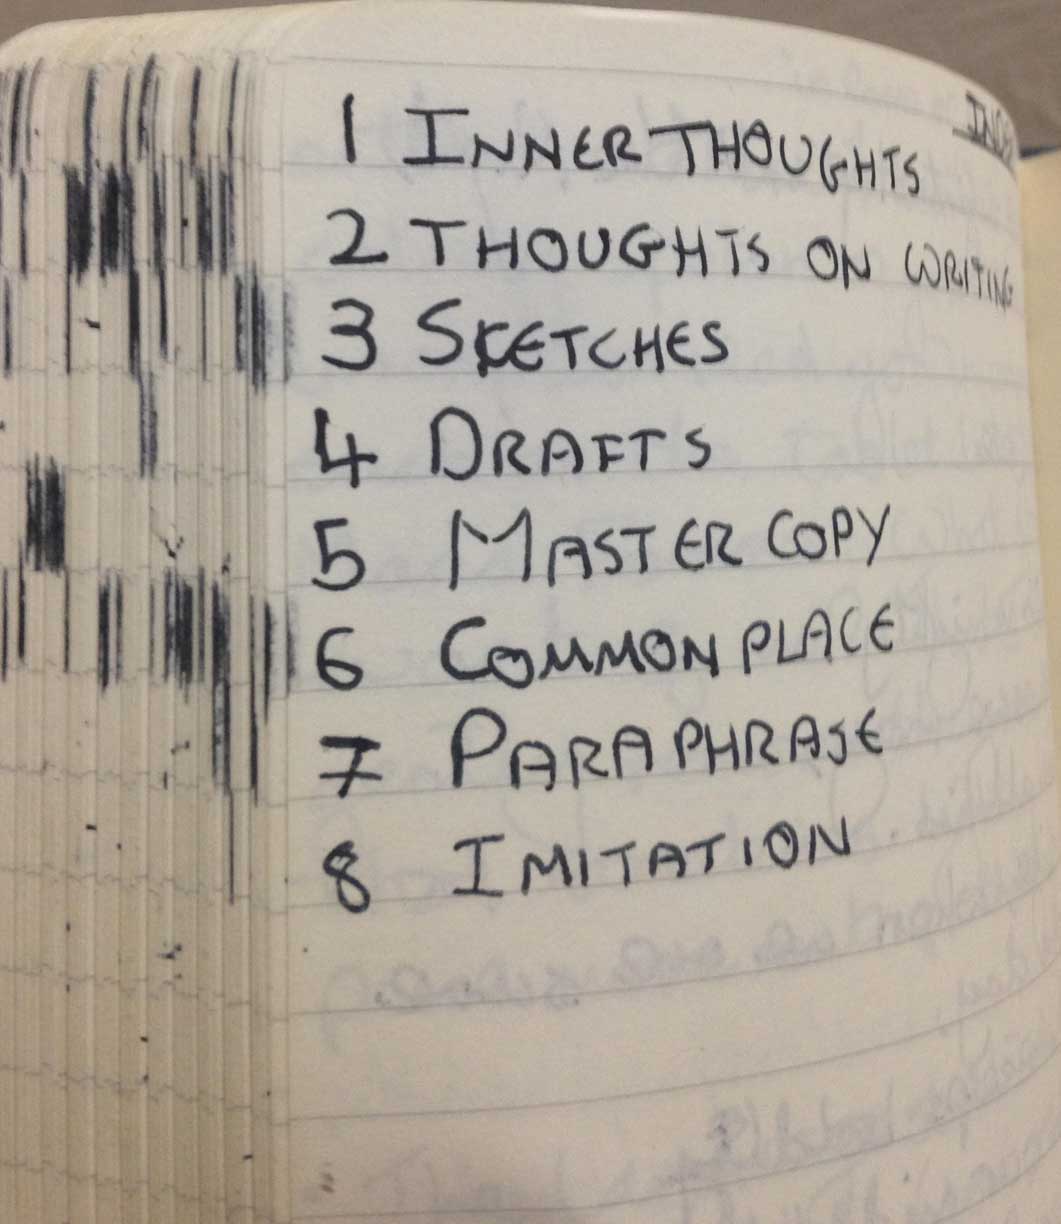 1 INNER THOUGHTS
2 THOUGHTS ON WRITING
3 SKETCHES
4 DRAFTS
5 MASTER COPY
6 COMMONPLACE
7 PARAPHRASE
8 IMITATION